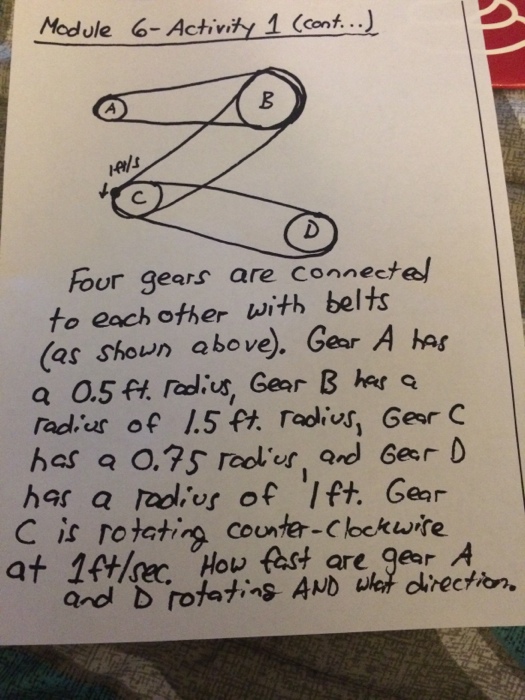 Module 6- Activity 1 (cont...)
A
B
1ft/s
C
D
Four gears are connected
to each other with belts
(as shown above). Gear A has
a 0.5 ft. radius, Gear B has a
radius of 1.5 ft. radius, Gear C
has a 0.75 radius, and Gear D
has a radius of 1ft. Gear
C is rotating counter-clockwise
at 1ft/sec. How fast are gear A
and D rotating AND what direction.